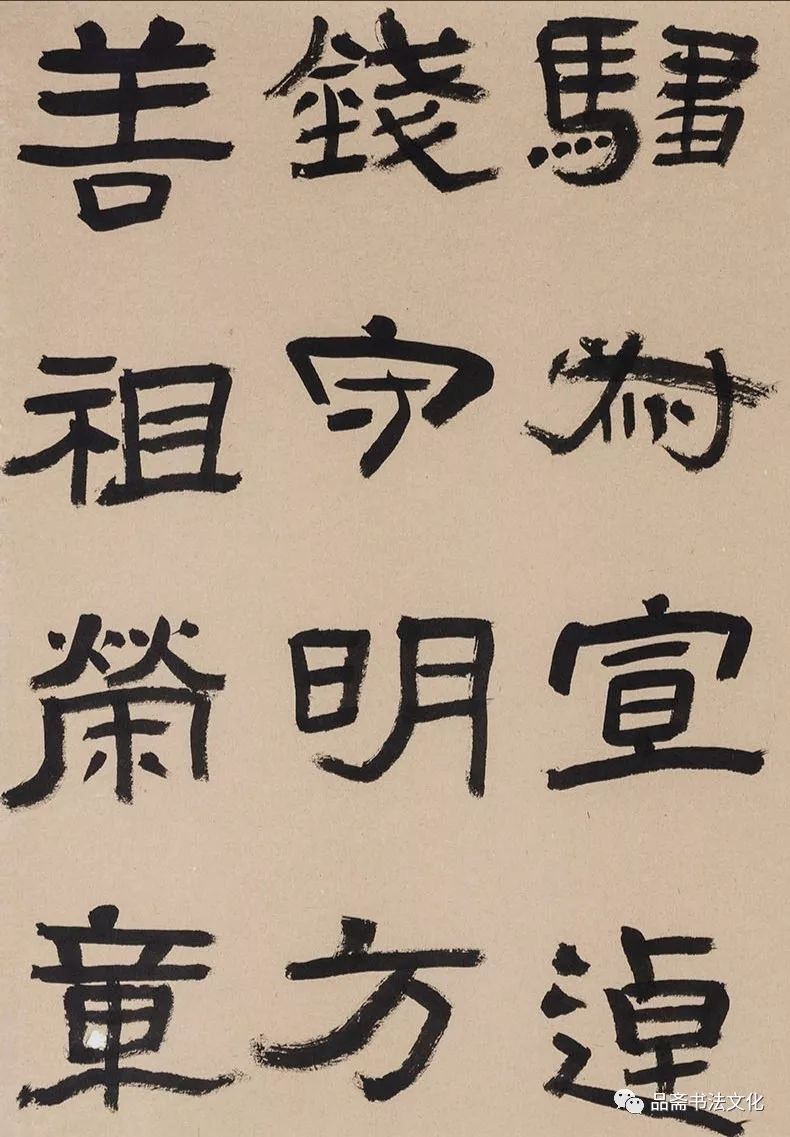 宣逴
錢守明方
善祖榮章
品斋书法文化